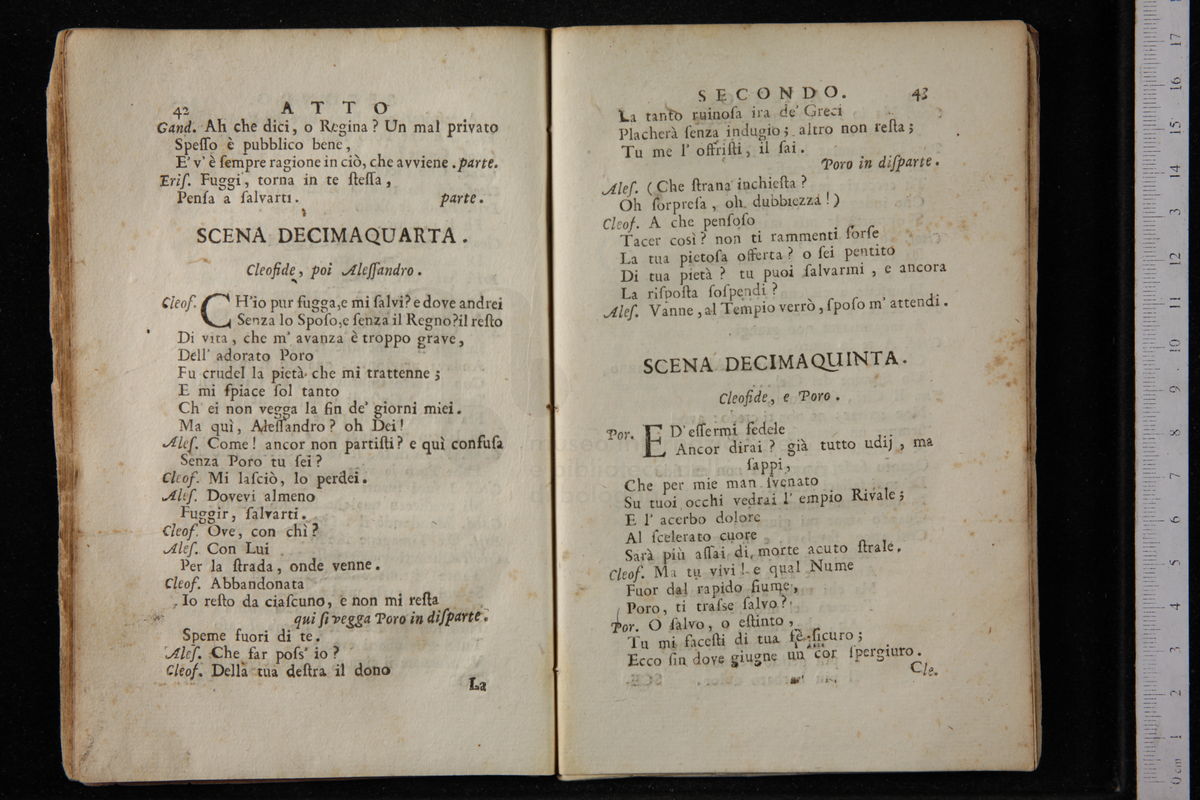 42 ATTO
Gand. Ah che dici, o Regina? Un mal privato
Speſſo è pubblico bene,
E' v' è ſempre ragione in ciò, che avviene. parte.
Eriſ. Fuggi, torna in te ſteſſa,
Penſa a ſalvarti. parte.
SCENA DECIMAQUARTA.
Cleofide, poi Aleſſandro.
Cleof. CH'io pur fugga,e mi ſalvi? e dove andrei
Senza lo Spoſo,e ſenza il Regno?il reſto
Di vita, che m' avanza è troppo grave,
Dell' adorato Poro
Fu crudel la pietà che mi trattenne;
E mi ſpiace ſol tanto
Ch' ei non vegga la fin de' giorni miei.
Ma quì, Aleſſandro? oh Dei!
Aleſ. Come! ancor non partiſti? e quì confuſa
Senza Poro tu ſei?
Cleof. Mi laſciò, lo perdei.
Aleſ. Dovevi almeno
Fuggir, ſalvarti.
Cleof. Ove, con chì?
Aleſ. Con Lui
Per la ſtrada, onde venne.
Cleof. Abbandonata
Io reſto da ciaſcuno, e non mi reſta
qui ſi vegga Poro in diſparte.
Speme fuori di te.
Aleſ. Che far poſs' io?
Cleof. Della tua deſtra il dono
La
SECONDO. 43
La tanto ruinoſa ira de' Greci
Placherà ſenza indugio; altro non reſta;
Tu me l' offriſti, il ſai.
Poro in diſparte.
Aleſ. (Che ſtrana inchieſta?
Oh ſorpreſa, oh dubbiezza!)
Cleof. A che penſoſo
Tacer così? non ti rammenti forſe
La tua pietoſa offerta? o ſei pentito
Di tua pietà? tu puoi ſalvarmi, e ancora
La riſpoſta ſoſpendi?
Aleſ. Vanne, al Tempio verrò, ſpoſo m' attendi.
SCENA DECIMAQUINTA.
Cleofide, e Poro.
Por. ED' eſſermi fedele
Ancor dirai? già tutto udij, ma
ſappi,
Che per mie man ſvenato
Su tuoi occhi vedrai l' empio Rivale;
E l' acerbo dolore
Al ſcelerato cuore
Sarà più aſſai di morte acuto ſtrale.
Cleof. Ma tu vivi! e qual Nume
Fuor dal rapido fiume,
Poro, ti traſse ſalvo?
Por. O ſalvo, o eſtinto,
Tu mi faceſti di tua fè ſicuro;
Ecco ſin dove giugne un cor ſpergiuro.
Cle.
0 cm 1 2 3 4 5 6 7 8 9 10 11 12 13 14 15 16 17